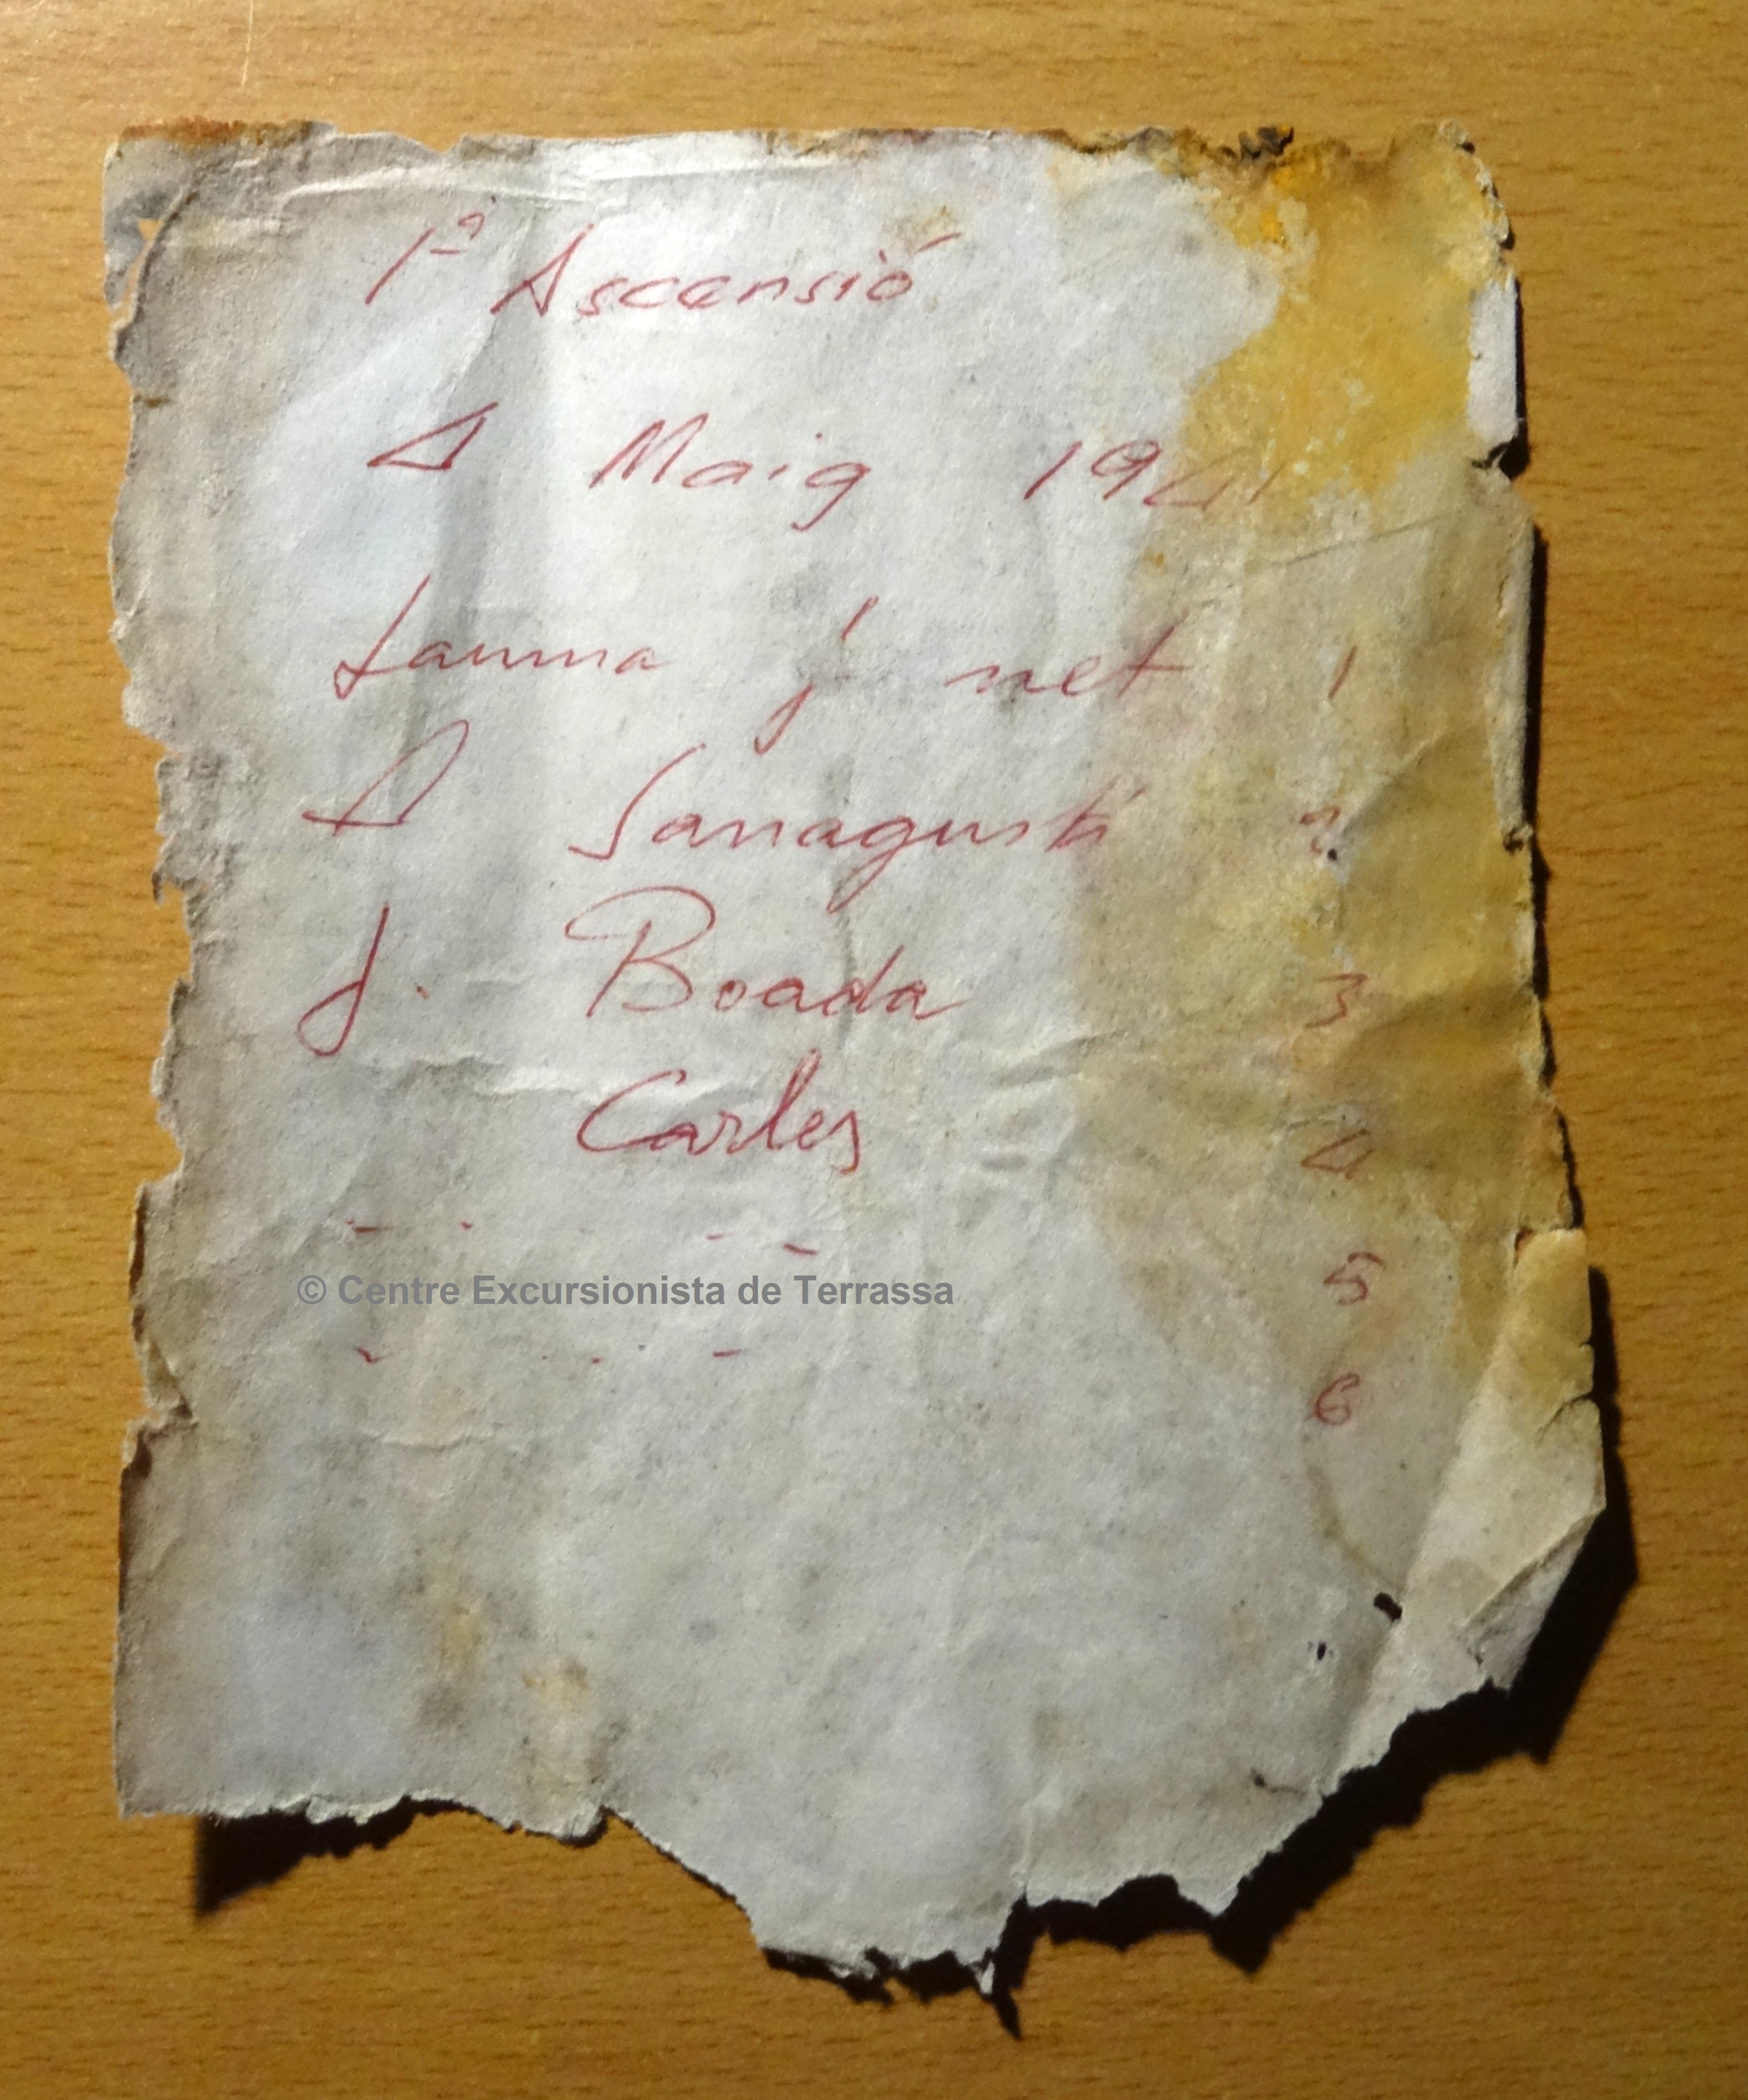 1ª Ascensió
Maig 1941
Jauma j net 1
A Sanagustí 2
J. Boada 3
Carles 4
© Centre Excursionista de Terrassa
5
6